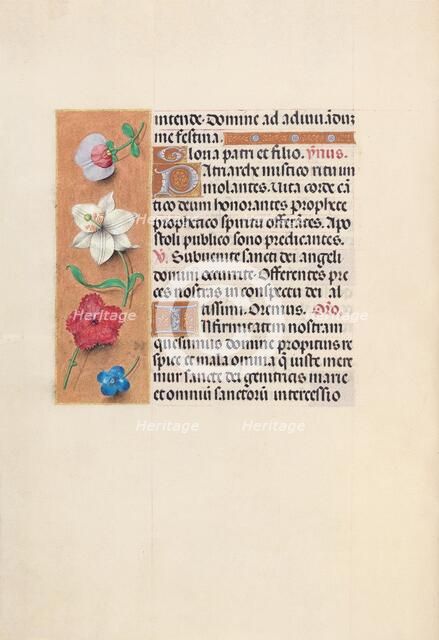 intende. Domine ad adiuuāduʒ
me festina.
Gloria patri et filio. ỹnus.
Patriarche mistico ritu im
molantes. Uita corde cā
tico deum honorantes prophete
prophetico spiritu offerentes. Apo
stoli publico sono predicantes.
℣. Subuenite sancti dei angeli
domini occurrite. Offerentes pre
ces nostras in conspectu dei al
tissimi. Oremus. Orõ.
Infirmitatem nostram
quesumus domine propitius re
spice et mala omnia que iuste mere
mur sancte dei genitricis marie
et omniū sanctorū intercessio
Heritage
Heritage
Heritage
Heritage
Heritage
Heritage